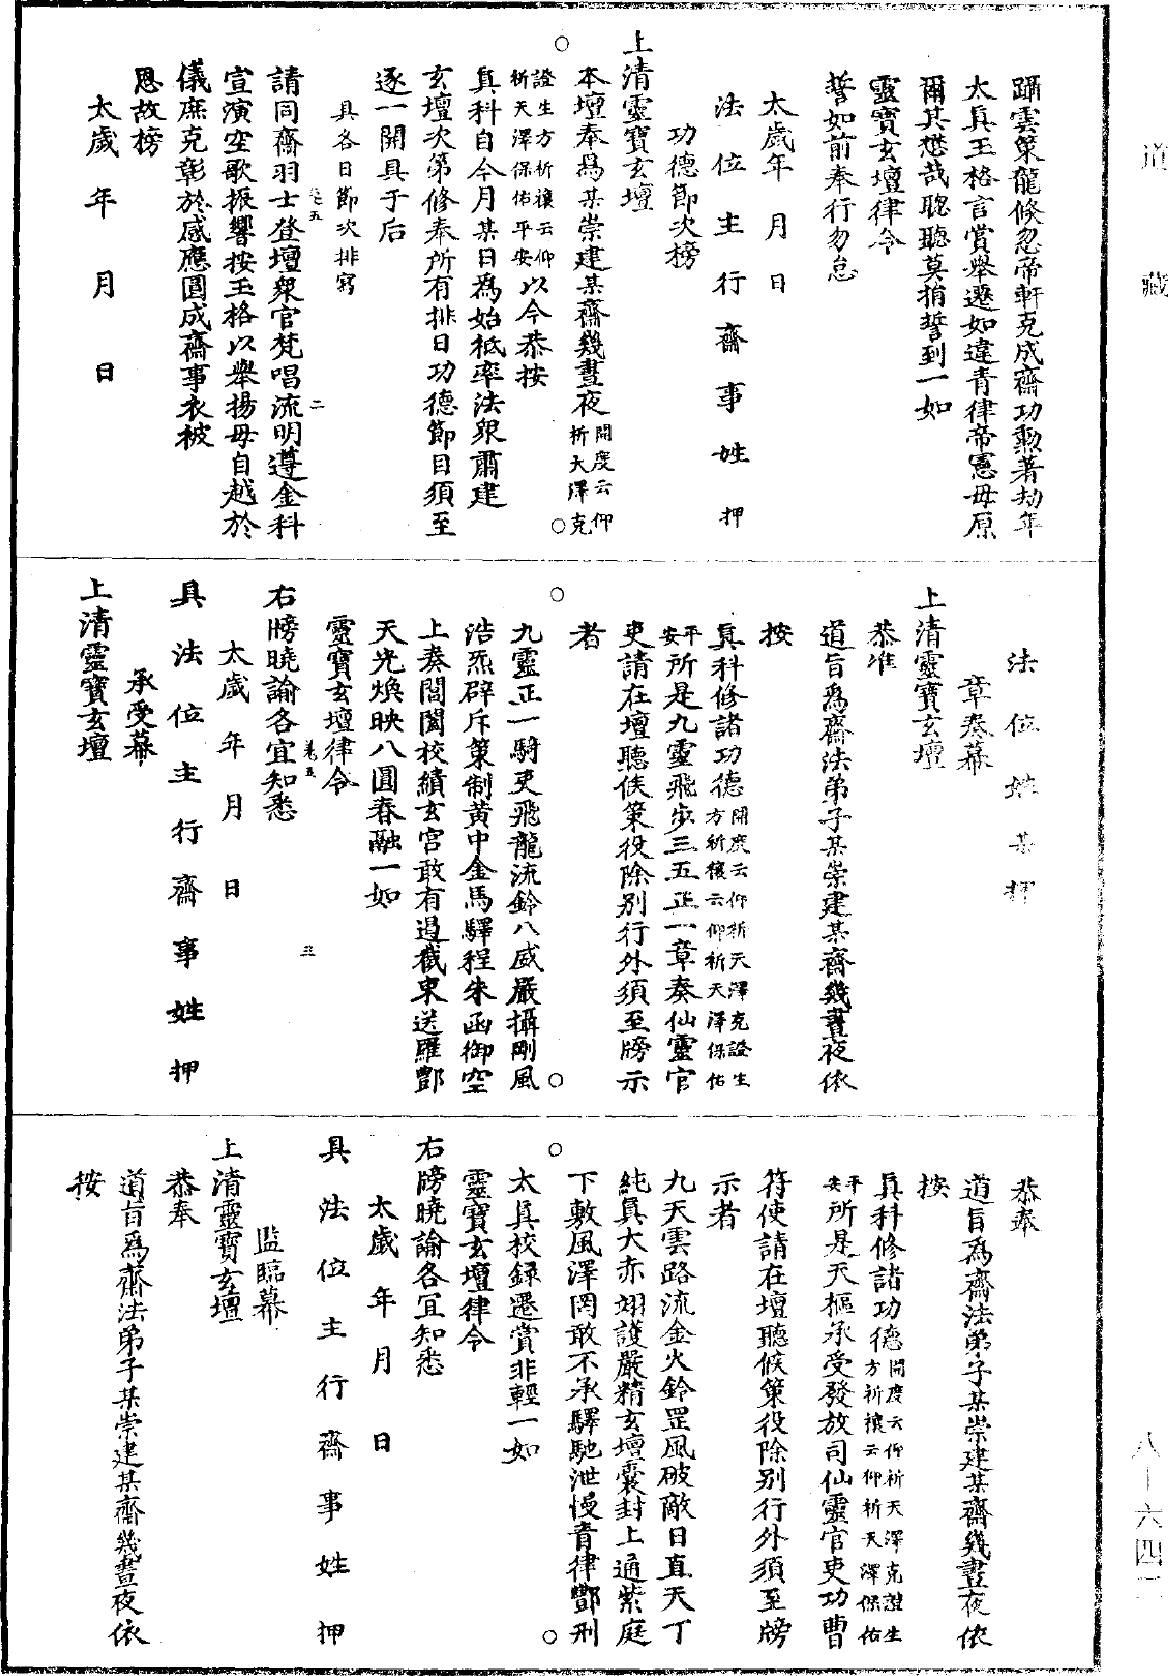 道藏
躡雲策龍倏忽帝軒克成齋功勲著劫年
太真玉格言賞舉遷如違青律帝憲毋原
爾其懋哉聰聽莫捎誓到一如
靈寶玄壇律令
誓如前奉行勿怠
太歲年月日
法位主行齋事姓押
功德節次榜
上清靈寶玄壇
本壇奉爲某崇建某齋幾晝夜開度云仰祈大澤克
證生方祈禳云仰祈天澤保佑平安以今恭按
真科自今月某日爲始祗率法衆肅建
玄壇次第修奉所有排日功德節目須至
逐一開具于后
具各日節次排寫
卷五 二
請同齋羽士登壇衆官梵唱流明遵金科
宣演空歌振響按玉格以舉揚毋自越於
儀庶克彰於感應圓成齋事衣被
恩故榜
太歲年月日
法位姓某押
章奏幕
上清靈寶玄壇
恭准
道旨爲齋法弟子某崇建某齋幾晝夜依
按
真科修諸功德開度云仰祈天澤克證生方祈禳云仰祈天澤保佑
平安所是九靈飛步三五正一章奏仙靈官
吏請在壇聽候策役除别行外須至牓示
者
九靈正一騎吏飛龍流鈴八威嚴攝剛風
浩炁辟斥策制黄中金馬驛程朱函御空
上奏閶闔校績玄宫敢有過截束送羅酆
天光煥映八圓春融一如
靈寶玄壇律令
卷五 三
右牓曉諭各宜知悉
太歲年月日
具法位主行齋事姓押
承受幕
上清靈寶玄壇
恭奉
道旨爲齋法弟子某崇建某齋幾晝夜依
按
真科修諸功德開度云仰祈天澤克證生方祈禳云仰祈天澤保佑
平安所是天樞承受發放司仙靈官吏功曹
符使請在壇聽候策役除别行外須至牓
示者
九天雲路流金火鈴罡風破敵日直天丁
純真大赤翊護嚴精玄壇囊封上通紫庭
下敷風澤罔敢不承驛馳泄慢青律酆刑
太真校録遷賞非輕一如
靈寶玄壇律令
右牓曉諭各宜知悉
太歲年月日
具法位主行齋事姓押
監臨幕
上清靈寶玄壇
恭奉
道旨爲齋法弟子某崇建某齋幾晝夜依
按
八—六四二